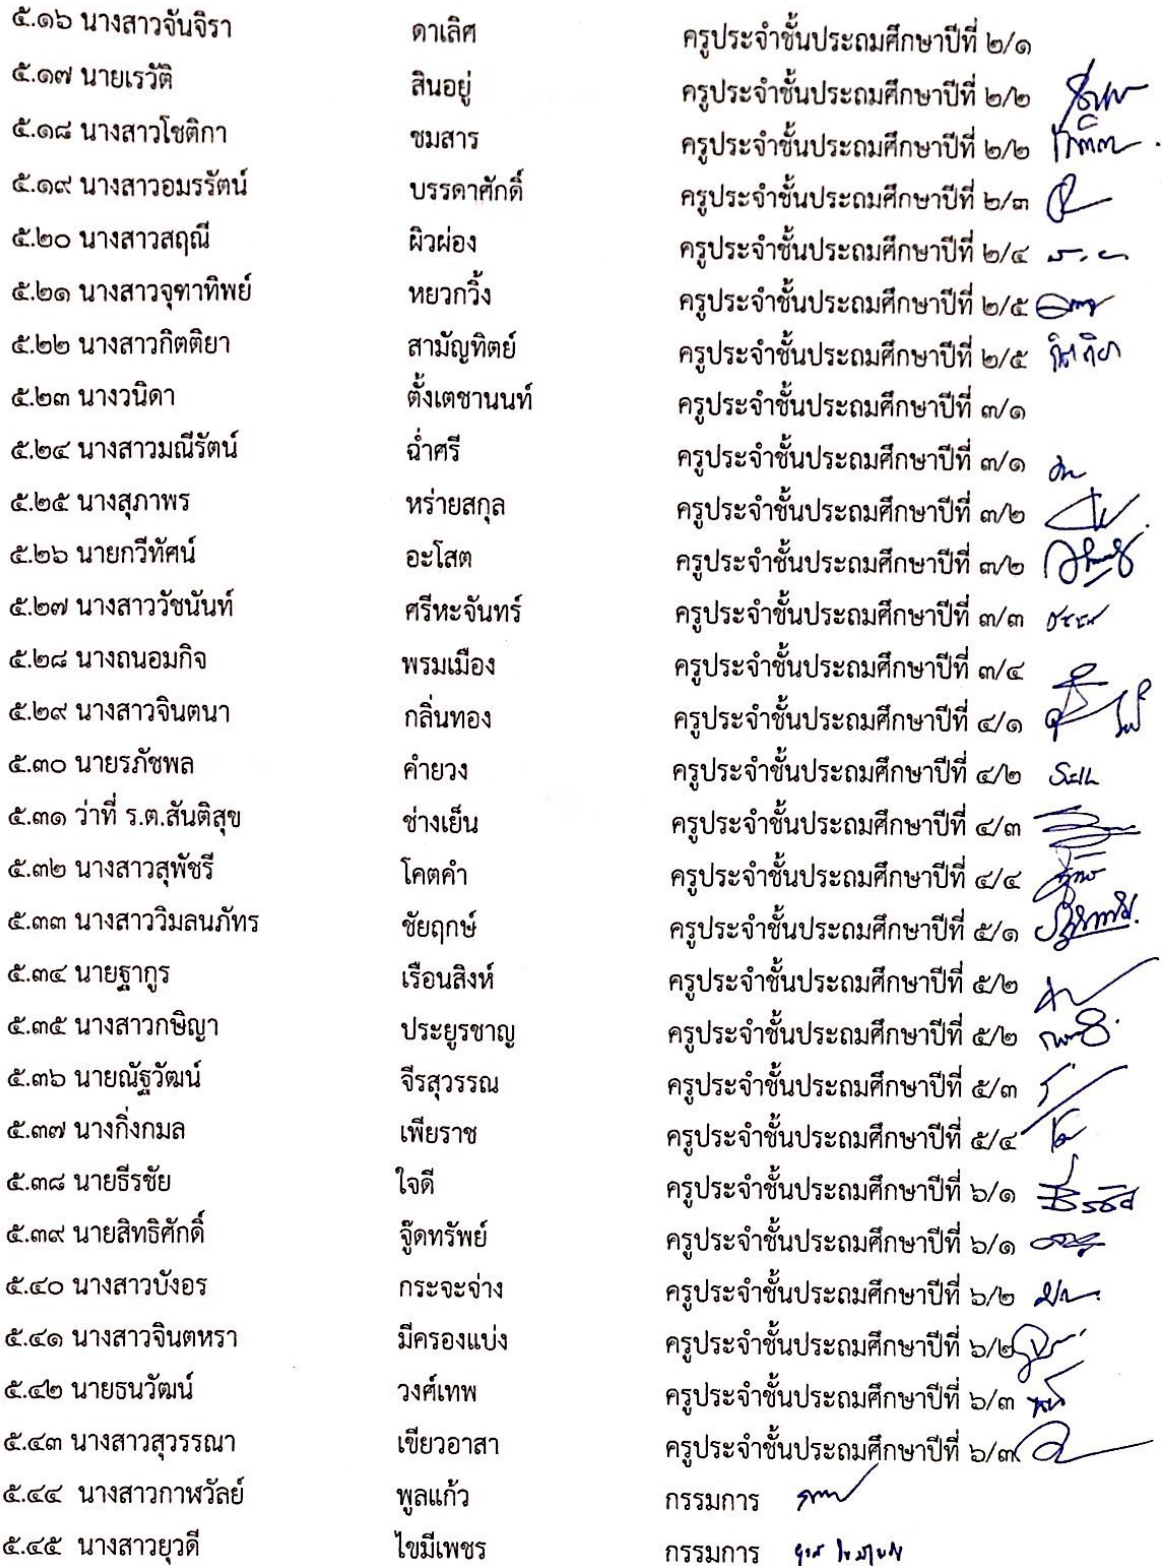 ๕.๑๖ นางสาวจันจิรา ดาเลิศ ครูประจำชั้นประถมศึกษาปีที่ ๒/๑
๕.๑๗ นายเรวัติ สินอยู่ ครูประจำชั้นประถมศึกษาปีที่ ๒/๒
๕.๑๘ นางสาวโชติกา ชมสาร ครูประจำชั้นประถมศึกษาปีที่ ๒/๒
๕.๑๙ นางสาวอมรรัตน์ บรรดาศักดิ์ ครูประจำชั้นประถมศึกษาปีที่ ๒/๓
๕.๒๐ นางสาวสฤณี ผิวผ่อง ครูประจำชั้นประถมศึกษาปีที่ ๒/๔
๕.๒๑ นางสาวจุฑาทิพย์ หยวกวิ้ง ครูประจำชั้นประถมศึกษาปีที่ ๒/๕
๕.๒๒ นางสาวกิตติยา สามัญทิตย์ ครูประจำชั้นประถมศึกษาปีที่ ๒/๕ กิตติยา
๕.๒๓ นางวนิดา ตั้งเตชานนท์ ครูประจำชั้นประถมศึกษาปีที่ ๓/๑
๕.๒๔ นางสาวมณีรัตน์ ฉ่ำศรี ครูประจำชั้นประถมศึกษาปีที่ ๓/๑
๕.๒๕ นางสุภาพร หร่ายสกุล ครูประจำชั้นประถมศึกษาปีที่ ๓/๒
๕.๒๖ นายกวีทัศน์ อะโสต ครูประจำชั้นประถมศึกษาปีที่ ๓/๒
๕.๒๗ นางสาววัชนันท์ ศรีหะจันทร์ ครูประจำชั้นประถมศึกษาปีที่ ๓/๓
๕.๒๘ นางถนอมกิจ พรมเมือง ครูประจำชั้นประถมศึกษาปีที่ ๓/๔
๕.๒๙ นางสาวจินตนา กลิ่นทอง ครูประจำชั้นประถมศึกษาปีที่ ๔/๑
๕.๓๐ นายรภัชพล คำยวง ครูประจำชั้นประถมศึกษาปีที่ ๔/๒
๕.๓๑ ว่าที่ ร.ต.สันติสุข ช่างเย็น ครูประจำชั้นประถมศึกษาปีที่ ๔/๓
๕.๓๒ นางสาวสุพัชรี โคตคำ ครูประจำชั้นประถมศึกษาปีที่ ๔/๔
๕.๓๓ นางสาววิมลนภัทร ชัยฤกษ์ ครูประจำชั้นประถมศึกษาปีที่ ๕/๑
๕.๓๔ นายฐากูร เรือนสิงห์ ครูประจำชั้นประถมศึกษาปีที่ ๕/๒
๕.๓๕ นางสาวกษิญา ประยูรชาญ ครูประจำชั้นประถมศึกษาปีที่ ๕/๒
๕.๓๖ นายณัฐวัฒน์ จีรสุวรรณ ครูประจำชั้นประถมศึกษาปีที่ ๕/๓
๕.๓๗ นางกิ่งกมล เพียราช ครูประจำชั้นประถมศึกษาปีที่ ๕/๔
๕.๓๘ นายธีรชัย ใจดี ครูประจำชั้นประถมศึกษาปีที่ ๖/๑
๕.๓๙ นายสิทธิศักดิ์ จู๊ดทรัพย์ ครูประจำชั้นประถมศึกษาปีที่ ๖/๑
๕.๔๐ นางสาวบังอร กระจะจ่าง ครูประจำชั้นประถมศึกษาปีที่ ๖/๒
๕.๔๑ นางสาวจินตหรา มีครองแบ่ง ครูประจำชั้นประถมศึกษาปีที่ ๖/๒
๕.๔๒ นายธนวัฒน์ วงศ์เทพ ครูประจำชั้นประถมศึกษาปีที่ ๖/๓
๕.๔๓ นางสาวสุวรรณา เขียวอาสา ครูประจำชั้นประถมศึกษาปีที่ ๖/๓
๕.๔๔ นางสาวกาหวัลย์ พูลแก้ว กรรมการ
๕.๔๕ นางสาวยุวดี ไขมีเพชร กรรมการ